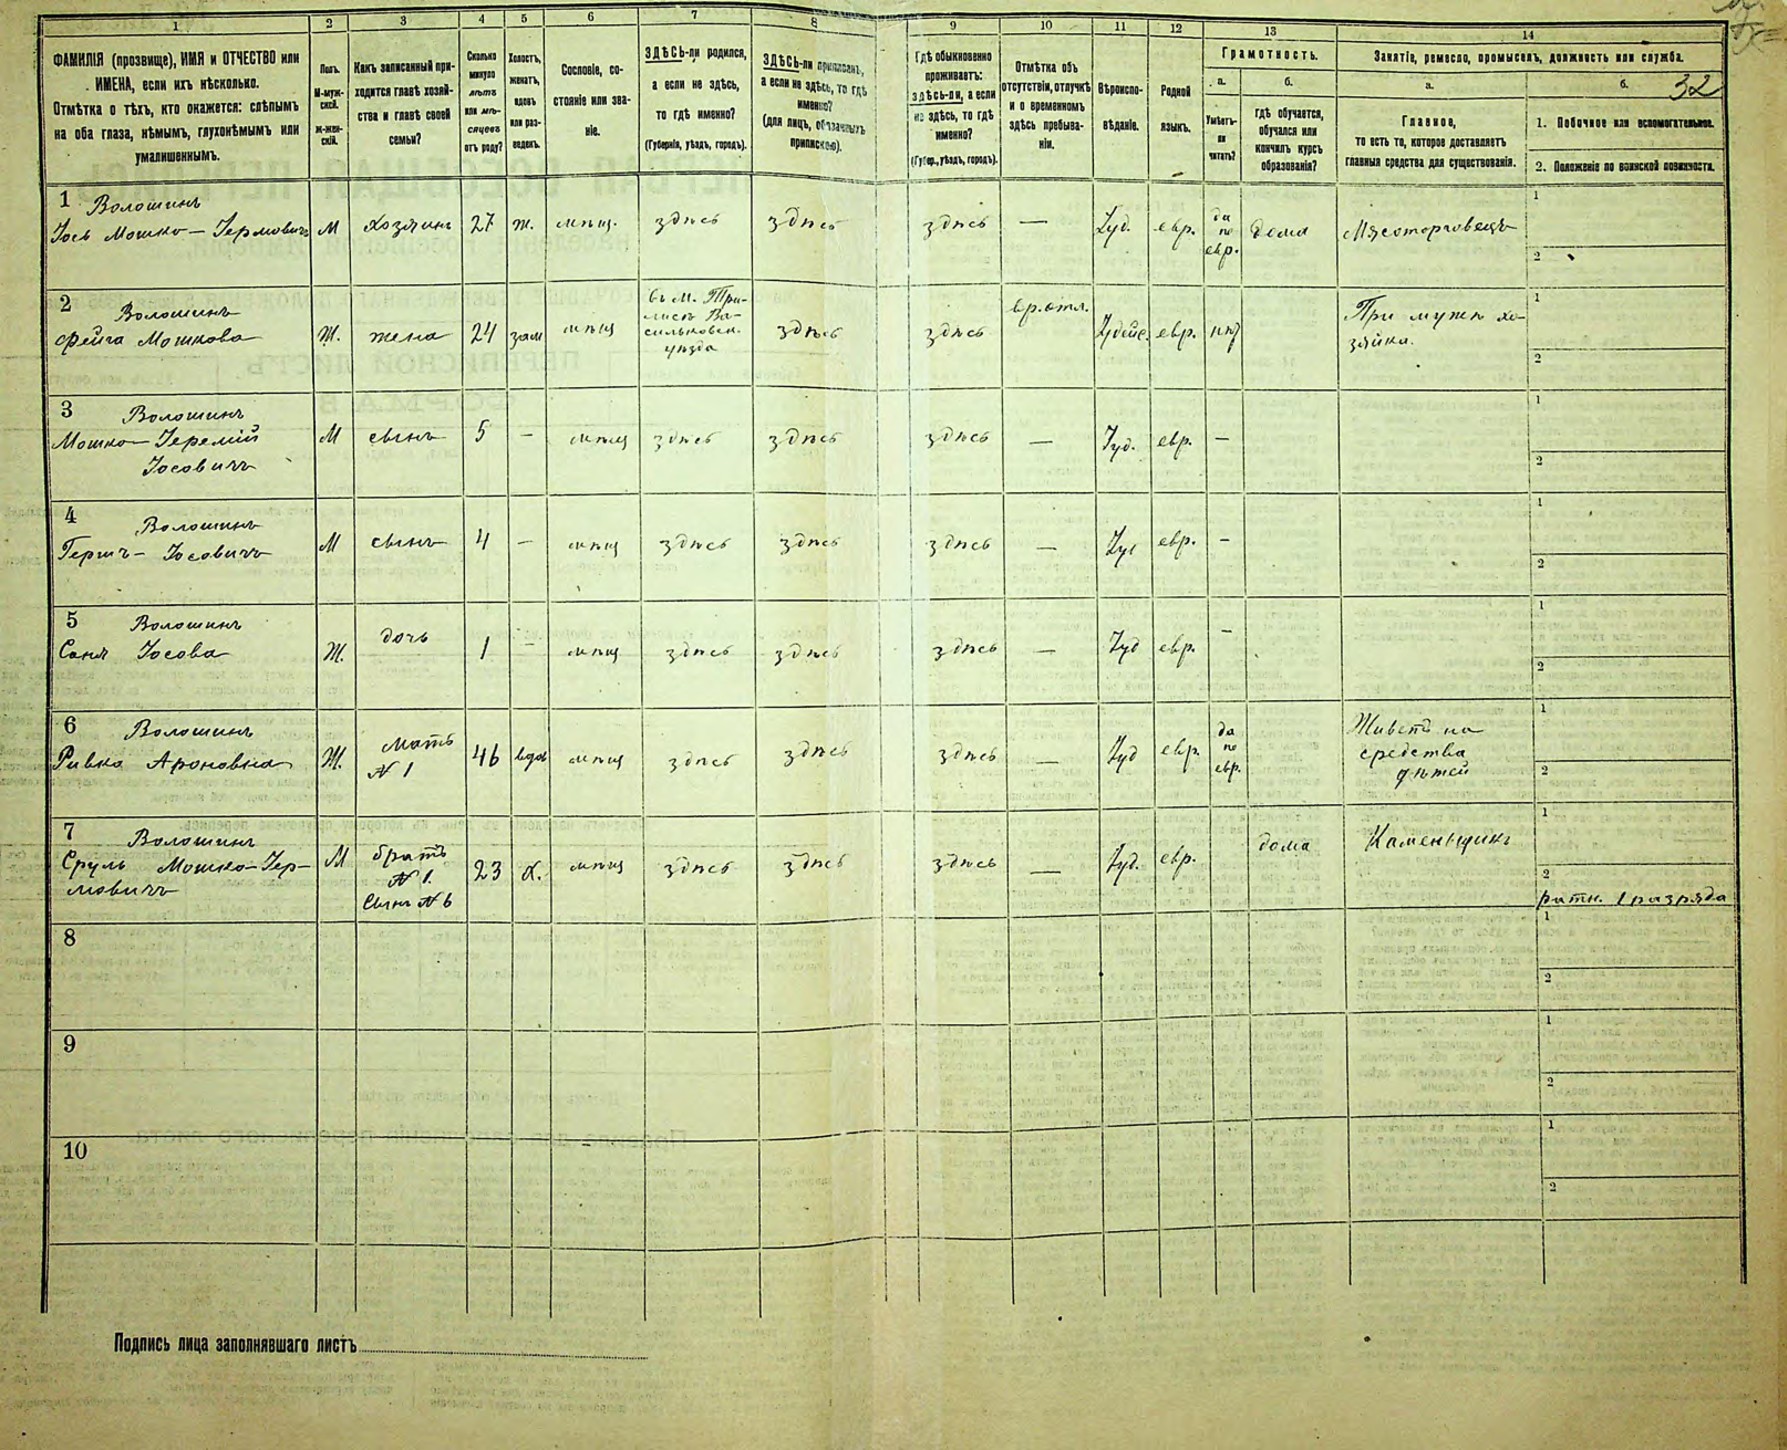 1
2
3
4
5
6
7
8
9
10
11
12
13
14
ФАМИЛІЯ (прозвище), ИМЯ и ОТЧЕСТВО или
ИМЕНА, если ихъ нѣсколько.
Отмѣтка о тѣхъ, кто окажется: слѣпымъ
на оба глаза, нѣмымъ, глухонѣмымъ или
умалишеннымъ.
Полъ.
М-муж-
ской.
ж-жен-
скій.
Какъ записанный при-
ходится главѣ хозяй-
ства и главѣ своей
семьи?
Сколько
минуло
лѣтъ
или мѣ-
сяцевъ
отъ роду?
Холостъ,
женатъ,
вдовъ
или раз-
веденъ.
Сословіе, со-
стояніе или зва-
ніе.
ЗДѢСЬ-ли родился,
а если не здѣсь,
то гдѣ именно?
(Губернія, уѣздъ, городъ).
ЗДѢСЬ-ли приписанъ,
а если не здѣсь, то гдѣ
именно?
(для лицъ, обязанныхъ
припискою).
Гдѣ обыкновенно
проживаетъ:
здѣсь-ли, а если
не здѣсь, то гдѣ
именно?
(Губер., уѣздъ, городъ).
Отмѣтка объ
отсутствіи, отлучкѣ
и о временномъ
здѣсь пребыва-
ніи.
Вѣроиспо-
вѣданіе.
Родной
языкъ.
Грамотность.
а.
б.
Умѣетъ-
ли
читать?
Гдѣ обучается,
обучался или
кончилъ курсъ
образованія?
Занятіе, ремесло, промыселъ, должность или служба.
а.
б.
32
Главное,
то есть то, которое доставляетъ
главныя средства для существованія.
1. Побочное или вспомогательное.
2. Положеніе по воинской повинности.
1 Волошинъ
Іось Мошко-Іермовичъ М хозяинъ 27 ж. мѣщ. здѣсь здѣсь здѣсь — Іуд. евр. да по евр. дома Мясоторговецъ
1
2
2 Волошинъ
Фейга Мошкова Ж. жена 24 зам мѣщ въ М. При-
лиск Ва-
сильковск.
уѣзда
здѣсь здѣсь вр. отл. Іудейс. евр. нѣт При мужѣ хо-
зяйка.
1
2
3 Волошинъ
Мошко-Іеремій
Іосовичъ
М сынъ 5 — мѣщ здѣсь здѣсь здѣсь — Іуд. евр. —
1
2
4 Волошинъ
Гершъ-Іосовичъ М сынъ 4 — мѣщ здѣсь здѣсь здѣсь — Іуд евр. —
1
2
5 Волошинъ
Сеня Іосова Ж. дочь 1 — мѣщ здѣсь здѣсь здѣсь — Іуд евр. —
1
2
6 Волошинъ
Ривка Ароновна Ж. мать
№ 1
46 вдов мѣщ здѣсь здѣсь здѣсь — Іуд евр. да
по
евр.
Живетъ на
средства
дѣтей
1
2
7 Волошинъ
Сруль Мошко-Іер-
мовичъ
М братъ
№ 1.
Сынъ № 6
23 х. мѣщ здѣсь здѣсь здѣсь — Іуд. евр. дома Каменьщикъ
1
2
ратн. 1 разряда
8
1
2
9
1
2
10
1
2
Подпись лица заполнявшаго листъ